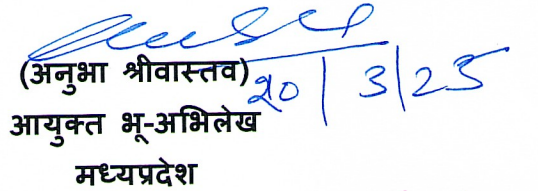 (अनुभा श्रीवास्तव) 20/3/25
आयुक्त भू-अभिलेख
मध्यप्रदेश